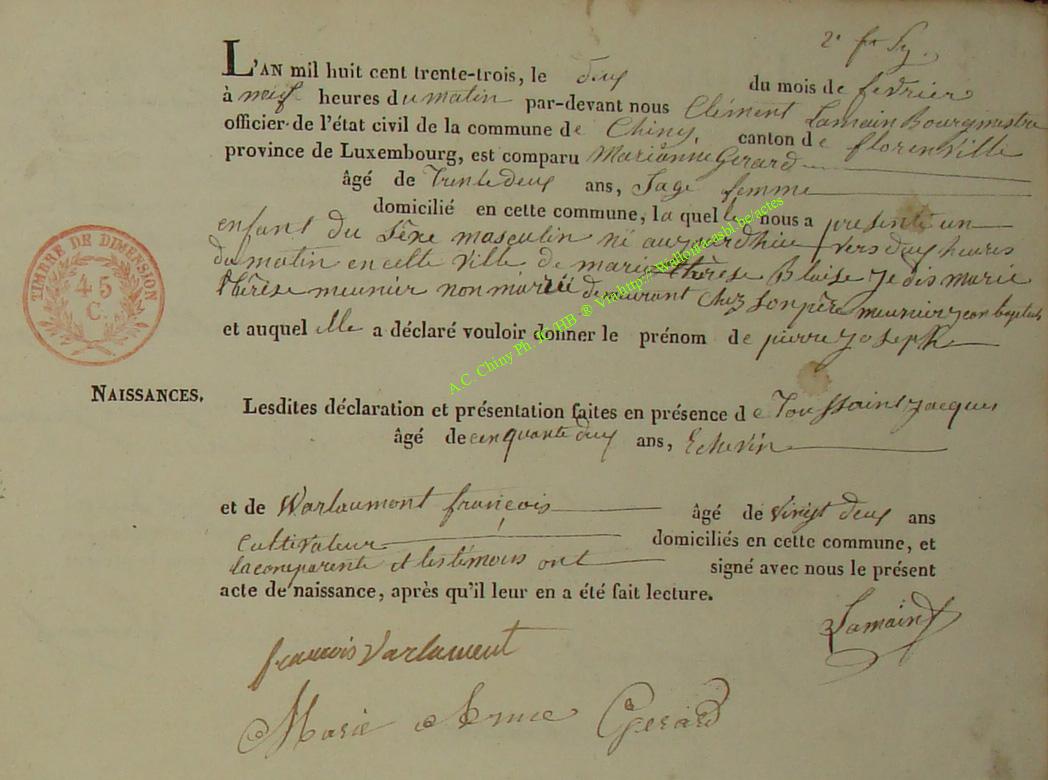 2e
L'AN mil huit cent trente-trois, le deux du mois de fevrier
à neuf heures du matin par-devant nous Clément Lamain Bourgmestre
officier de l'état civil de la commune de Chiny, canton de florenville
province de Luxembourg, est comparu Marianne Gerard
âgé de trente deux ans, Sage femme
domicilié en cette commune, la quelle nous a presenté un
enfant du sêxe masculin né aujourdhui vers deux heures
du matin en cette ville de marie thérèse Blaise je dis marie
thérèse meunier non mariée demeurant chez son père meunier jean baptiste
et auquel elle a déclaré vouloir donner le prénom de pierre joseph
TIMBRE DE DIMENSION
45
C.
NAISSANCES.
Lesdites déclaration et présentation faites en présence de Toussaint jacques
âgé de cinquante deux ans, Echevin
et de Warlaumont françois âgé de vingt deux ans
Cultivateur domiciliés en cette commune, et
la comparente et les témoins ont signé avec nous le présent
acte de naissance, après qu'il leur en a été fait lecture.
Lamain
francois Varlament
Marie Anne Gerard
A.C. Chiny Ph. JC HB ® Via http://Wallonia-asbl.be/actes